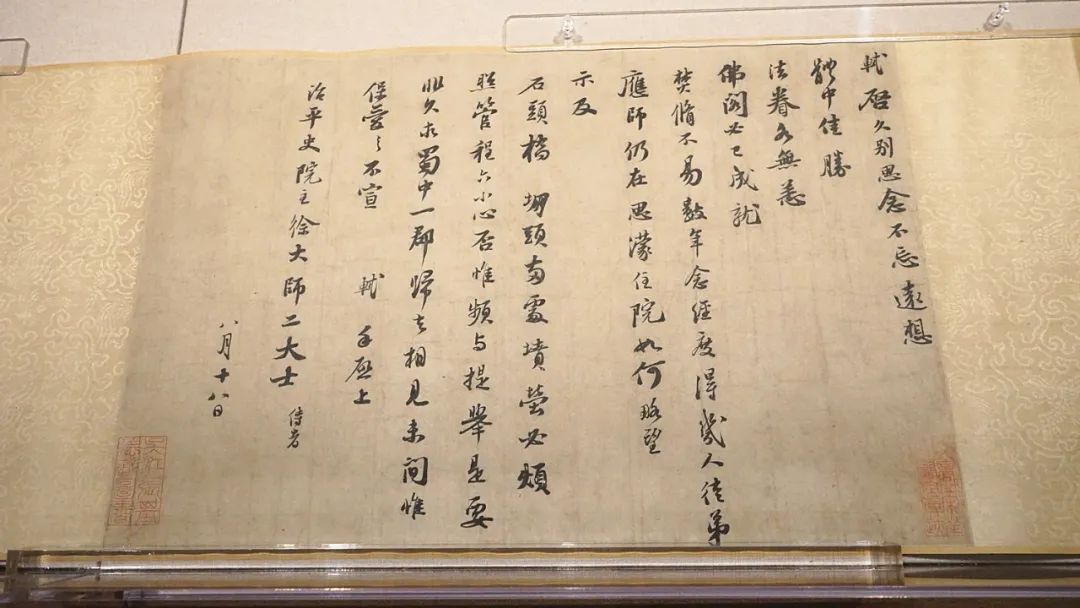 軾啓久別思念不忘遠想
體中佳勝
法眷各無恙
佛閣必已成就
焚脩不易數年念經度得幾人徒弟
應師仍在思濛住院如何略望
示及
石頭橋堋頭兩處墳塋必煩
照管程六小心否惟頻与提舉是要
非久求蜀中一郡歸去相見未間惟
保愛之不宣 軾手啓上
治平史院主徐大師二大士侍者
八月十八日